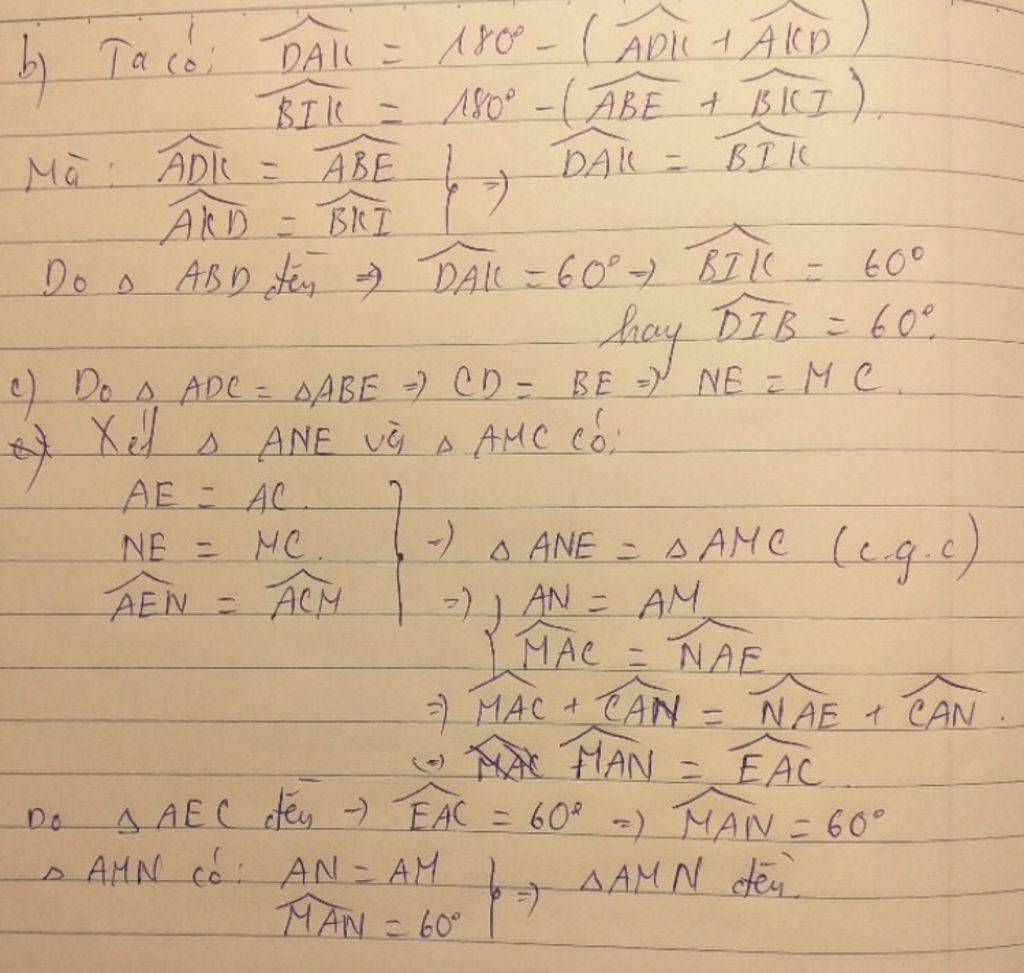 b) Ta có: $\widehat{DAK}$ = 180° - ($\widehat{ADK}$ + $\widehat{AKD}$)
$\widehat{BIK}$ = 180° - ($\widehat{ABE}$ + $\widehat{BKI}$).
Mà: $\widehat{ADK}$ = $\widehat{ABE}$ } ⇒ $\widehat{DAK}$ = $\widehat{BIK}$
$\widehat{AKD}$ = $\widehat{BKI}$
Do △ ABD đều ⇒ $\widehat{DAK}$ = 60° ⇒ $\widehat{BIK}$ = 60°
hay $\widehat{DIB}$ = 60°.
c) Do △ ADC = △ABE ⇒ CD = BE ⇒ NE = MC.
Xét △ ANE và △ AMC có:
AE = AC.
NE = MC. } ⇒ △ ANE = △ AMC (c.g.c)
$\widehat{AEN}$ = $\widehat{ACM}$ ⇒ { AN = AM
$\widehat{MAC}$ = $\widehat{NAE}$
⇒ $\widehat{MAC}$ + $\widehat{CAN}$ = $\widehat{NAE}$ + $\widehat{CAN}$.
⇔ $\widehat{MAN}$ = $\widehat{EAC}$
Do △ AEC đều ⇒ $\widehat{EAC}$ = 60° ⇒ $\widehat{MAN}$ = 60°
△ AMN có: AN = AM } ⇒ △AMN đều.
$\widehat{MAN}$ = 60°